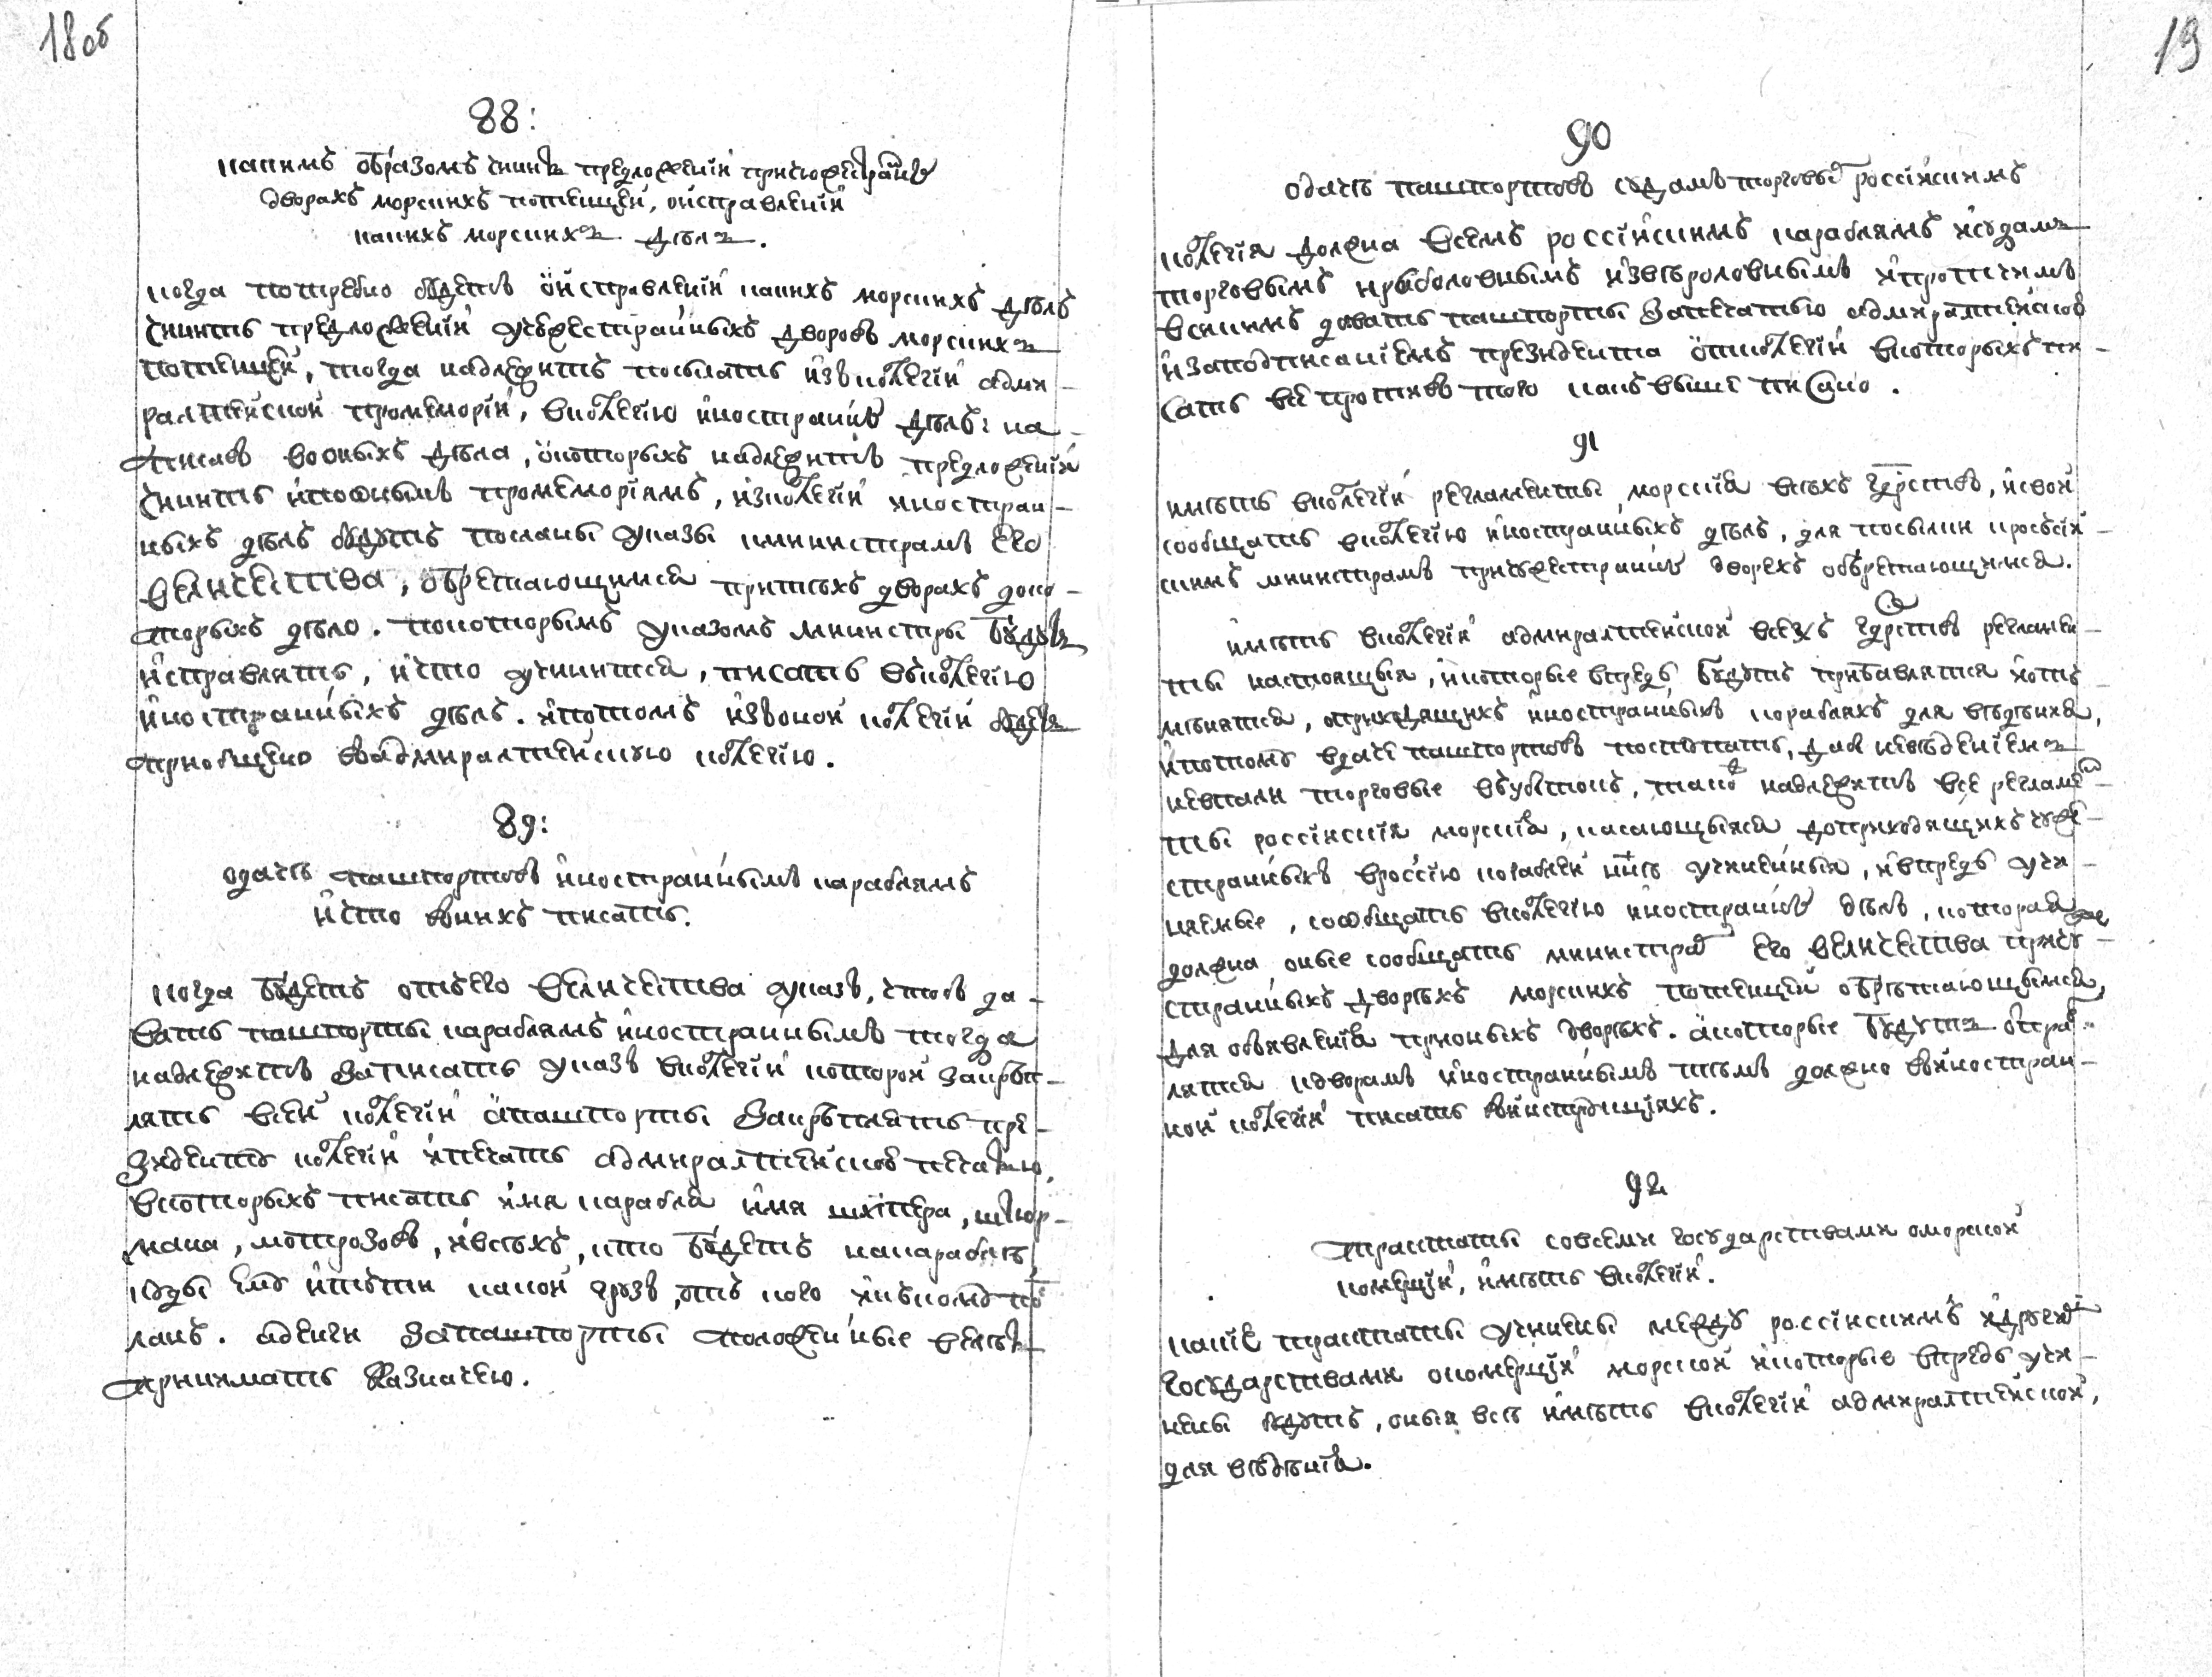 18об
88:
какимъ образомъ чинить предложенїи причюжестранъ
дворахъ морскихъ потенцеи, оисправленїи
какихъ морскихъ дѣлъ.
когда потребно будетъ оисправленїи какихъ морскихъ дѣлъ
чинить предложенїи учюжестранныхъ дворовъ морскихъ
потенцеи, тогда надлежитъ посылать изъ колегїи адми-
ралтеискои промеморїи, вколегїю иностранн дѣлъ: на-
писавъ воныхъ дѣла, окоторыхъ надлежитъ предложенїи
чинить ипоонымъ промеморїямъ, изколегїи иностран-
ныхъ дѣлъ будутъ посланы указы кминистрамъ его
величества, обретающимся притѣхъ дворахъ доко-
торыхъ дѣло. покоторымъ указомъ министры будутъ
исправлять, ичто учинится, писать вколегїю
иностранныхъ дѣлъ. ипотомъ изъ онои колегїи будетъ
приобщено вадмиралтеискую колегїю.
89:
одачѣ пашпортовъ иностраннымъ караблямъ
ичто вних писать.
когда будетъ отъ его величества указъ, чтобъ да-
вать пашпорты караблямъ иностраннымъ тогда
надлежитъ записать указъ вколегїи которои закрѣп-
лять всеи колегїи апашпорты закрѣплять пре-
зиденту колегїи ипечать адмиралтеискою печатью,
вкоторыхъ писать имя карабля имя шхїпера, штюр-
мана, мотрозовъ, ивсѣхъ, кто будетъ накараблѣ,
куды ему итьти какои грузъ, отъ кого икъкому по
ланъ. аденги запашпорты положенные велѣть
принимать казначею.
19
90
одачѣ пашпортовъ судамъ торговы россїискимъ
колегїя должна всемъ россїискимъ караблямъ исудамъ
торговымъ ирыболовнымъ извѣроловнымъ ипротчимъ
всякимъ давать пашпорты запечатью адмиралтеискою
изаподписанїемъ президента отколегїи вкоторыхъ пи-
сать все противъ того какъ выше писано.
91
имѣть вколегїи регламенты морскїя всѣхъ гдрствъ, исвои
сообщать вколегїю иностранныхъ дѣлъ, для посылки кросїи-
скимъ министрамъ причюжестранн дворехъ обретающимся.
имѣть вколегїи адмиралтеискои всехъ гдрствъ регламен-
ты настоящыя, икоторые впредь будутъ прибавлятся иотъ-
мѣнятся, оприходящихъ иностранныхъ кораблях для вѣдѣнїя,
ипотому вдаче пашпортовъ поступать, дабы невѣденїемъ
невпали торговые вубытокъ, також надлежитъ все регламен-
ты россїискїя морскїя, касающыяся доприходящихъ чюже-
странныхъ вроссїю кораблеи ннѣ учиненныя, ивпредь учи-
няемые, сообщать вколегїю иностранн дѣлъ, которая
должна оные сообщать министра его величества причю-
странныхъ дворѣхъ морскихъ потенцеи обрѣтающымся,
для объявленїя прионыхъ дворѣхъ. акоторые будутъ отправ-
лятся кдворамъ иностраннымъ тѣмъ должно виностран-
нои колегїи писать винструкцїяхъ.
92
трактаты совсеми государствами оморскои
комерцїи, имѣть вколегїи.
какїе трактаты учинены между россїискимъ идругими
государствами окомерцїи морскои икоторые впредь учи-
нены будутъ, оныя всѣ имѣть вколегїи адмиралтеискои,
для вѣдѣнїя.